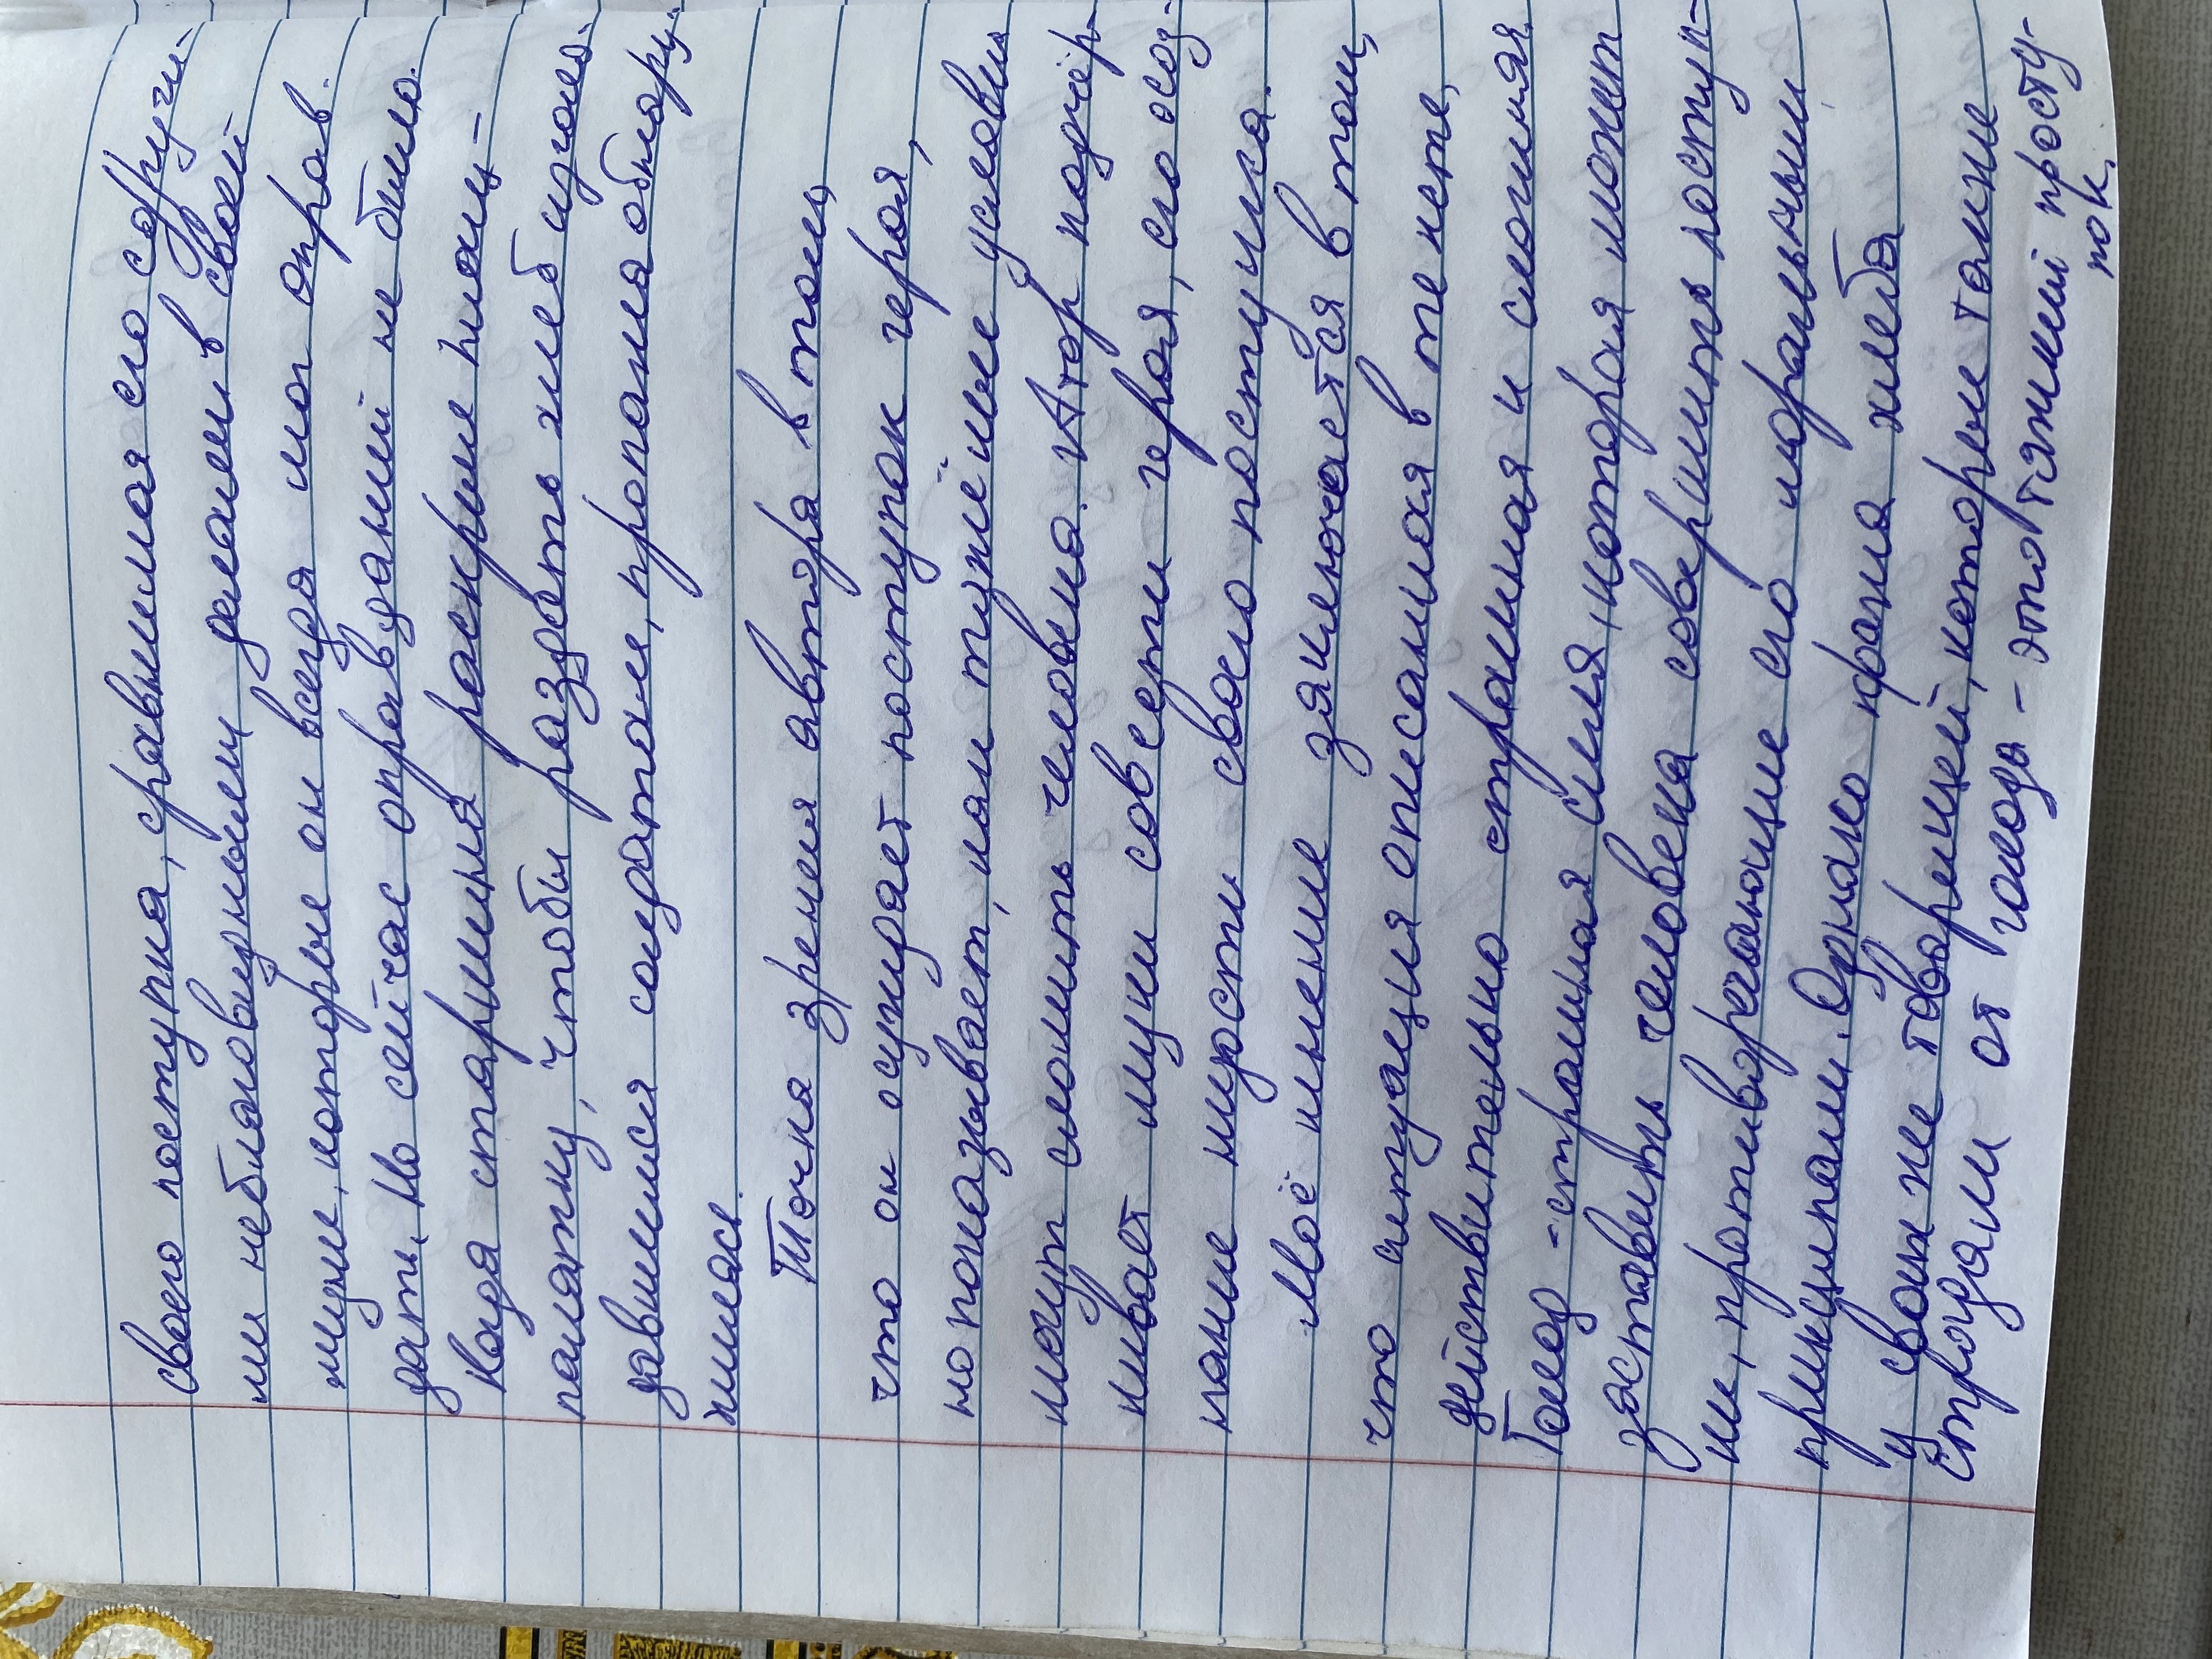 своего поступка, сравнивая его с други-
ми неблаговидными делами в своей
жизни, которые он всегда мог оправ-
дать. Но сейчас оправданий не было.
Когда старшина раскрыл плащ-
палатку, чтобы раздать хлеб изголо-
давшимся солдатам, пропажа обнару-
жилась.
Точка зрения автора в том,
что он осуждает поступок героя,
но показывает, как тяжёлые условия
могут сломить человека. Автор подчёр-
кивает муки совести героя, его осоз-
нание мерзости своего поступка.
Моё мнение заключается в том,
что ситуация описанная в тексте,
действительно страшная и сложная.
Голод - страшная сила, которая может
заставить человека совершить поступ-
ки, противоречащие его моральным
принципам. Однако кража хлеба
у своих же товарищей, которые также
страдали от голода - это тяжкий просту-
пок.